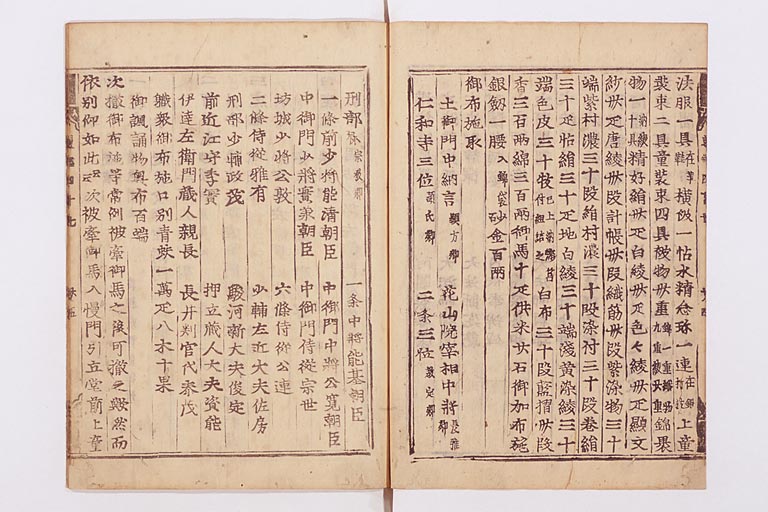 法服一具 横被一帖水精念珠一連 上童
装束二具童装束四具被物卅重
物一十具精好絹卅疋白綾卅疋色々綾卅疋顕文
紗卅疋唐綾卅段計帳卅段織筋卅段紫染物三十
端紫村濃三十段紺村濃三十段染付三十段巻絹
三十疋帖絹三十疋地白綾三十端浅黄染綾三十
端色皮三十枚 白布三十段藍摺卅段
香三百両綿三百両御馬十疋供米廿石御加布施
銀剱一腰 砂金百両
御布施取
土御門中納言 顕方卿 花山院宰相中将 長雅卿
仁和寺三位 顕氏卿 二条三位 教定卿
刑部 宗教卿 一条中将能基朝臣
一條前少将能清朝臣 中御門中将公寛朝臣
中御門少将實衆朝臣 中御門侍從宗世
坊城少将公敦 六條侍從公連
二條侍從雅有 少輔左近大夫佐房
刑部少輔政茂 駿河新大夫俊定
前近江守季實 押立蔵人大夫資能
伊達左衛門蔵人親長 長井判官代泰茂
職衆御布施口別青蚨一萬疋八木十果
一御諷誦物奥布百端
次撤御布施等常例被牽御馬之後可撤之歟然而
依別仰如此云々次被牽御馬入慢門引立堂前上童